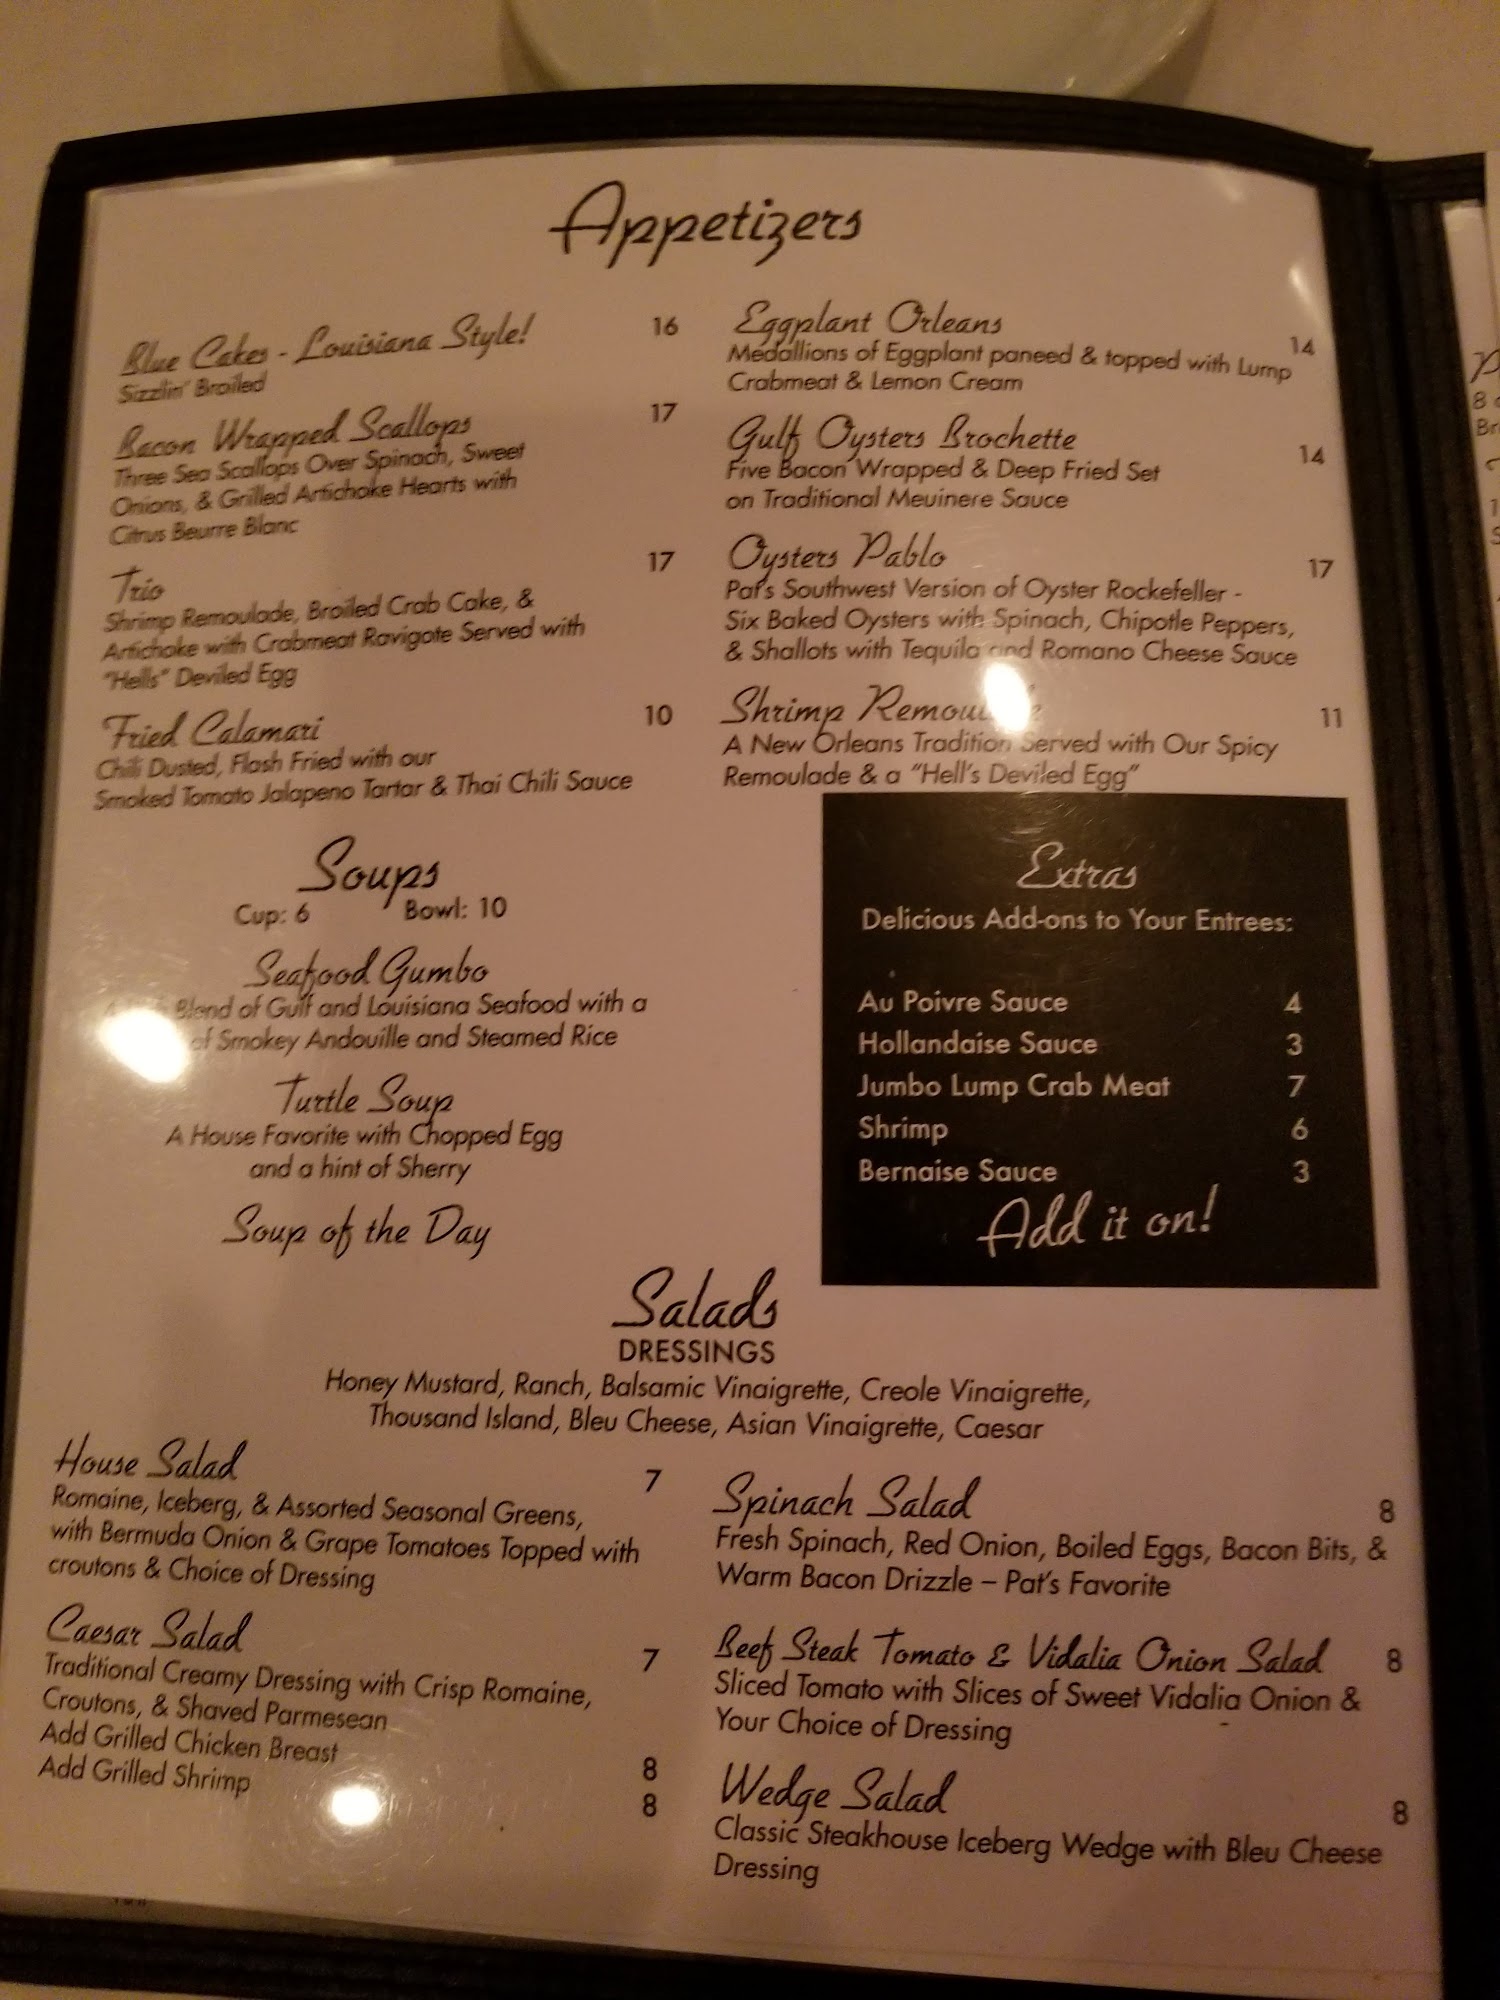 Appetizers
Blue Cakes - Louisiana Style! 16
Sizzlin' Broiled
Bacon Wrapped Scallops 17
Three Sea Scallops Over Spinach, Sweet
Onions, & Grilled Artichoke Hearts with
Citrus Beurre Blanc
Trio 17
Shrimp Remoulade, Broiled Crab Cake, &
Artichoke with Crabmeat Ravigote Served with
"Hells" Deviled Egg
Fried Calamari 10
Chili Dusted, Flash Fried with our
Smoked Tomato Jalapeno Tartar & Thai Chili Sauce
Eggplant Orleans 14
Medallions of Eggplant paneed & topped with Lump
Crabmeat & Lemon Cream
Gulf Oysters Brochette 14
Five Bacon Wrapped & Deep Fried Set
on Traditional Meuinere Sauce
Oysters Pablo 17
Pat's Southwest Version of Oyster Rockefeller -
Six Baked Oysters with Spinach, Chipotle Peppers,
& Shallots with Tequila and Romano Cheese Sauce
Shrimp Remoulade 11
A New Orleans Tradition Served with Our Spicy
Remoulade & a "Hell's Deviled Egg"
Soups
Cup: 6 Bowl: 10
Seafood Gumbo
Blend of Gulf and Louisiana Seafood with a
of Smokey Andouille and Steamed Rice
Turtle Soup
A House Favorite with Chopped Egg
and a hint of Sherry
Soup of the Day
Extras
Delicious Add-ons to Your Entrees:
Au Poivre Sauce 4
Hollandaise Sauce 3
Jumbo Lump Crab Meat 7
Shrimp 6
Bernaise Sauce 3
Add it on!
Salads
DRESSINGS
Honey Mustard, Ranch, Balsamic Vinaigrette, Creole Vinaigrette,
Thousand Island, Bleu Cheese, Asian Vinaigrette, Caesar
House Salad 7
Romaine, Iceberg, & Assorted Seasonal Greens,
with Bermuda Onion & Grape Tomatoes Topped with
croutons & Choice of Dressing
Caesar Salad 7
Traditional Creamy Dressing with Crisp Romaine,
Croutons, & Shaved Parmesean
Add Grilled Chicken Breast 8
Add Grilled Shrimp 8
Spinach Salad 8
Fresh Spinach, Red Onion, Boiled Eggs, Bacon Bits, &
Warm Bacon Drizzle – Pat's Favorite
Beef Steak Tomato & Vidalia Onion Salad 8
Sliced Tomato with Slices of Sweet Vidalia Onion &
Your Choice of Dressing
Wedge Salad 8
Classic Steakhouse Iceberg Wedge with Bleu Cheese
Dressing